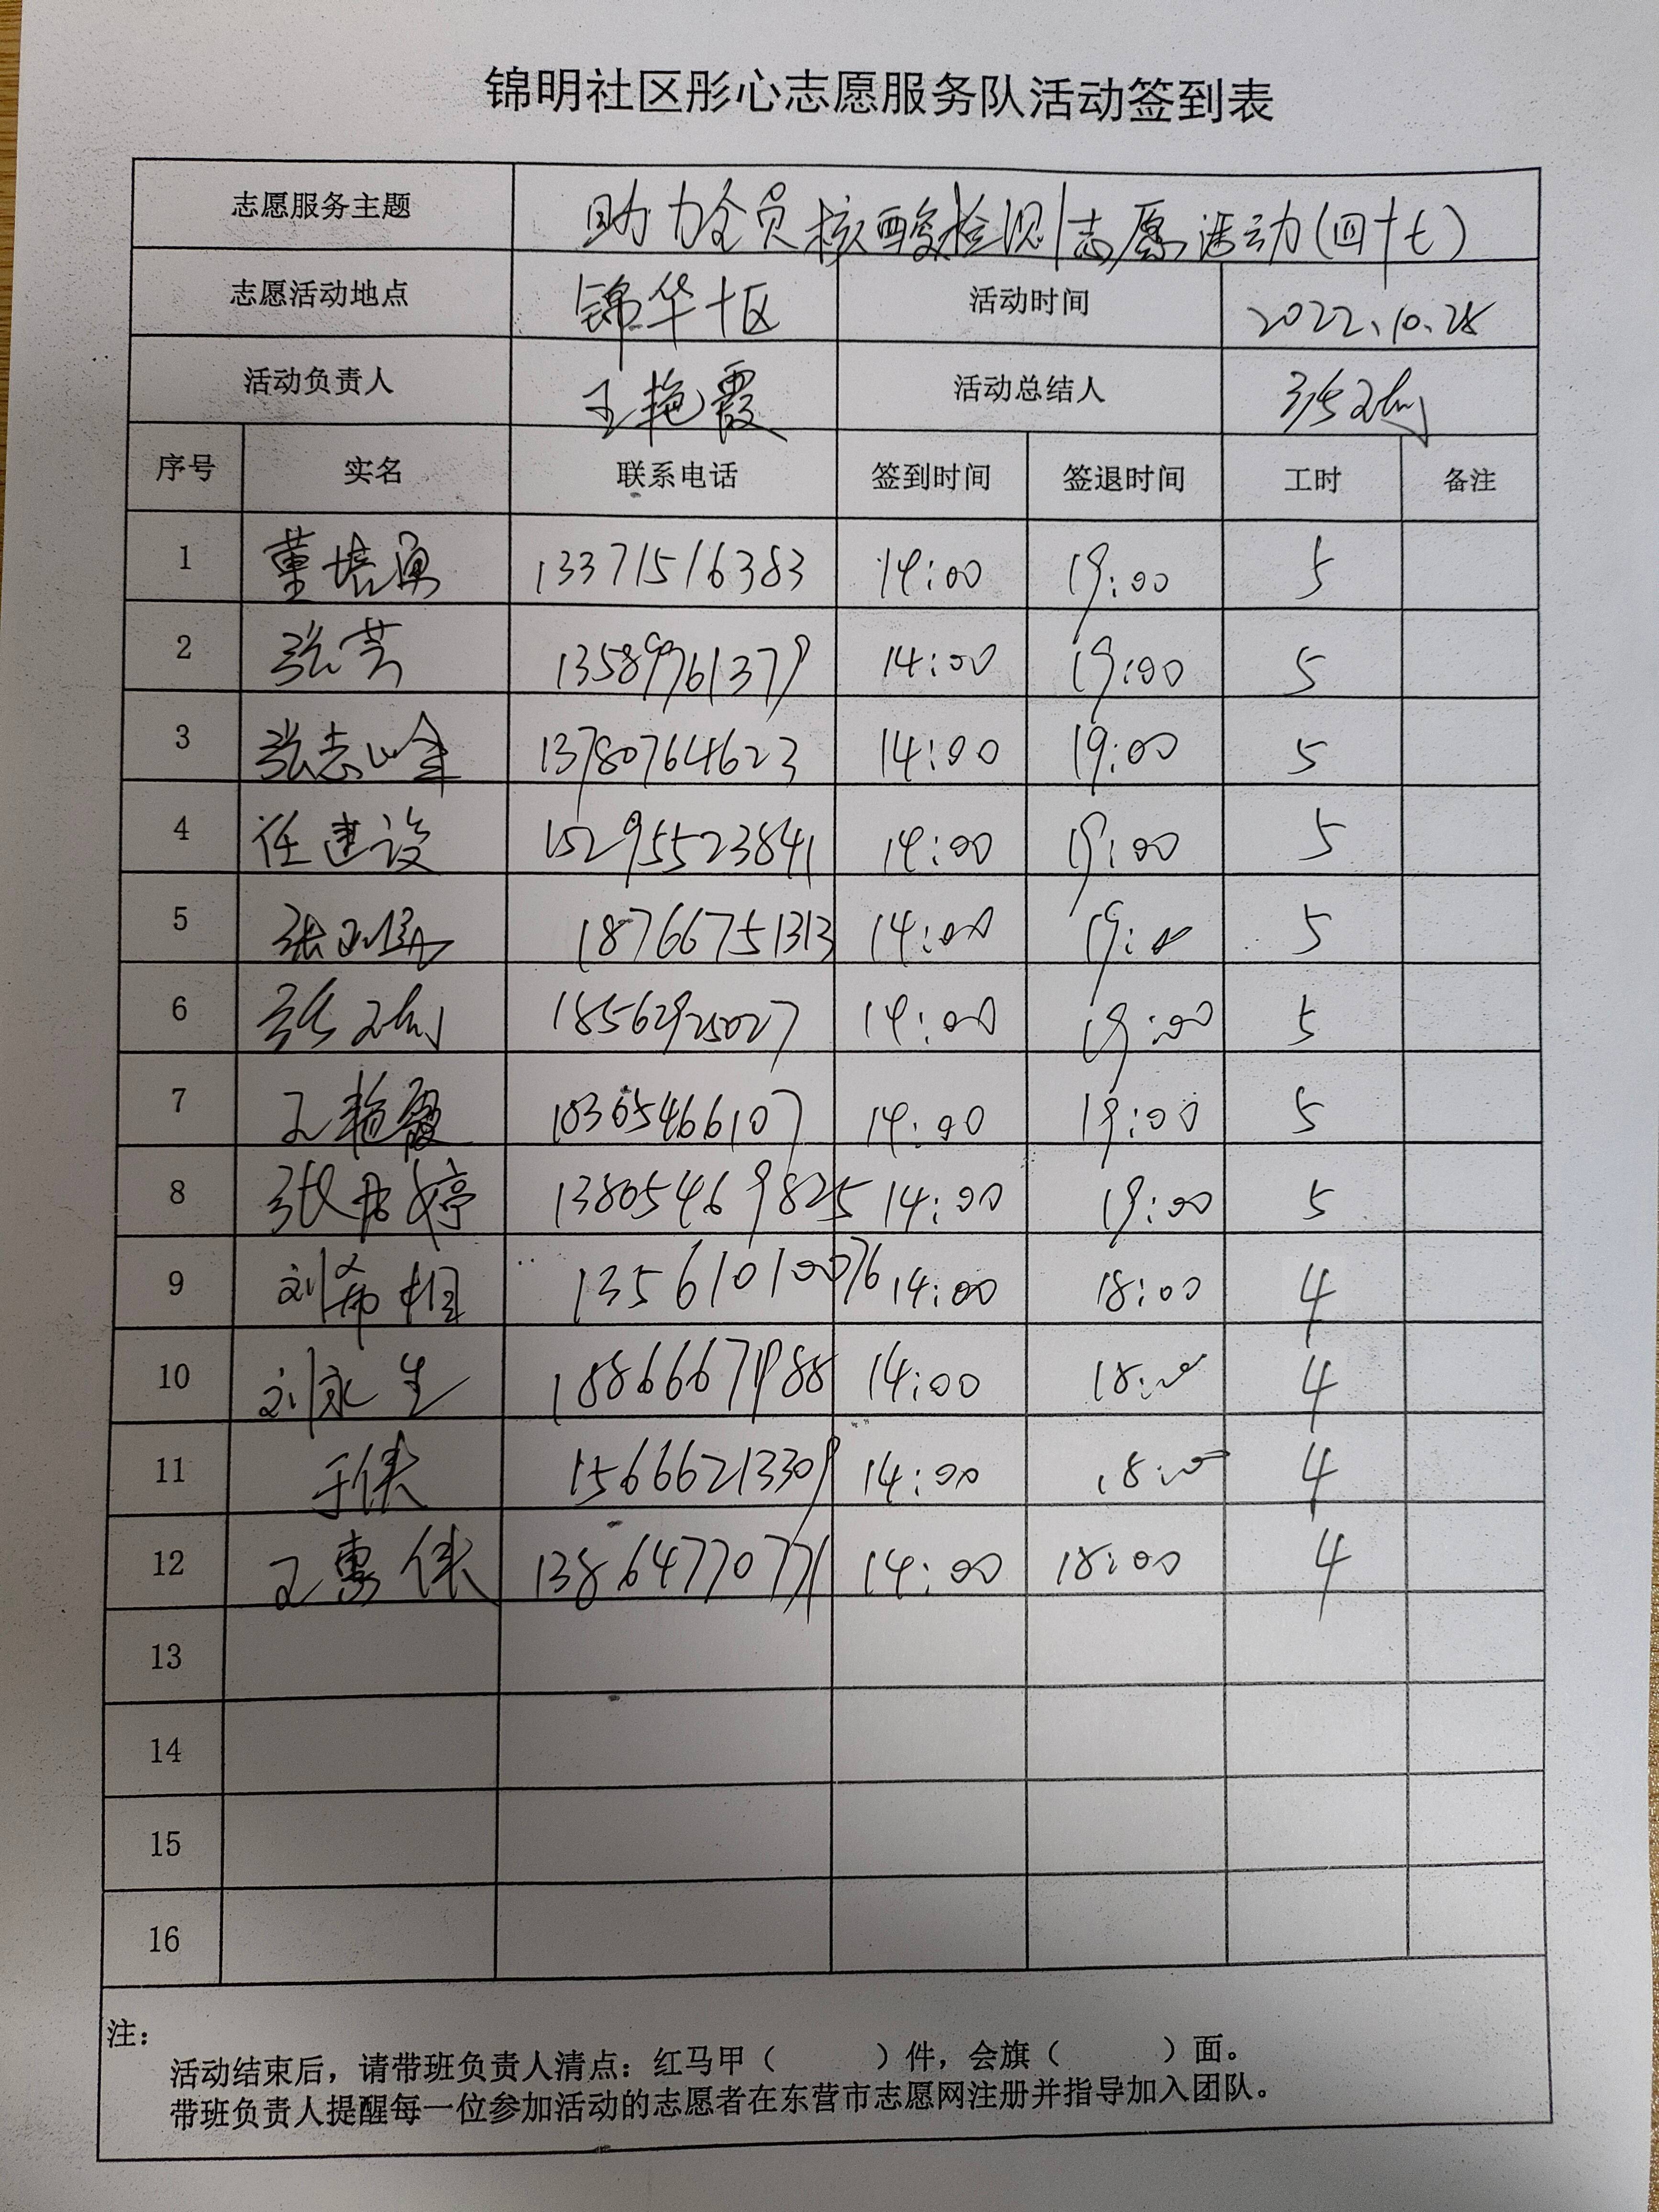 锦明社区彤心志愿服务队活动签到表
志愿服务主题 助力全员核酸检测志愿活动(四十七)
志愿活动地点 锦华十区 活动时间 2022、10、28
活动负责人 王艳霞 活动总结人 张
序号 实名 联系电话 签到时间 签退时间 工时 备注
1 董培勇 13371516383 14:00 19:00 5
2 张芸 13589961379 14:00 19:00 5
3 张志峰 13780764623 14:00 19:00 5
4 任建设 15295523841 14:00 19:00 5
5 张 18766751313 14:00 19:00 5
6 张 18562925027 14:00 19:00 5
7 王艳霞 14:00 19:00 5
8 张 婷 13805469825 14:00 19:00 5
9 刘希恒 13561010076 14:00 18:00 4
10 刘永生 18866671988 14:00 18:00 4
11 于侠 15666213309 14:00 18:00 4
12 王惠侠 13864770771 14:00 18:00 4
13
14
15
16
注:
活动结束后,请带班负责人清点:红马甲( )件,会旗( )面。
带班负责人提醒每一位参加活动的志愿者在东营市志愿网注册并指导加入团队。